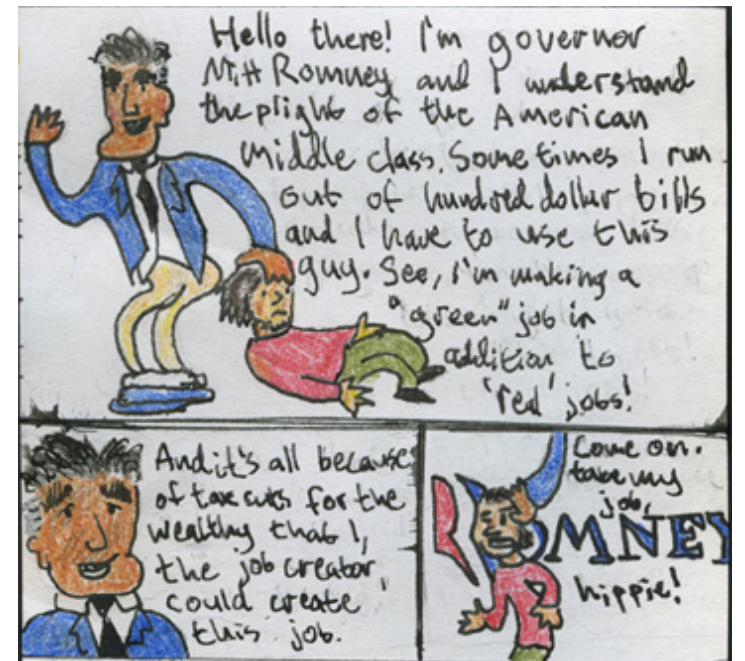 Hello there! I'm governor
Mitt Romney and I understand
the plight of the American
middle class. Sometimes I run
out of hundred dollar bills
and I have to use this
guy. See, I'm making a
"green" job in
addition to
'red' jobs!
And it's all because
of tax cuts for the
wealthy that I,
the job creator
could create
this job.
Come on.
take my
job,
OMNEY
hippie!